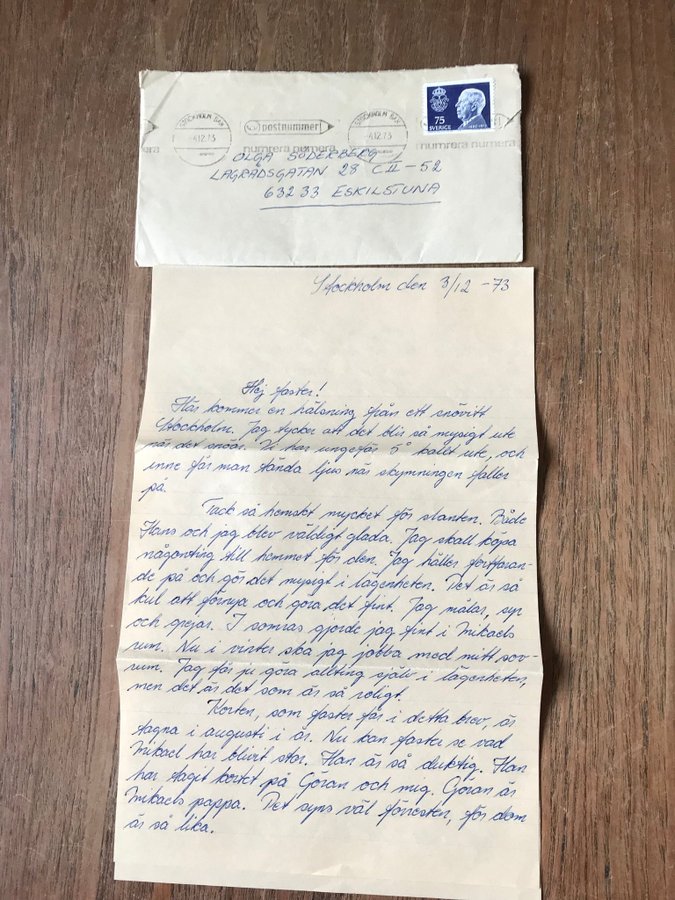 STOCKHOLM BAN
-4.12.73
postnummer
numrera numera
STOCKHOLM BAN
-4.12.73
numrera numera
75
SVERIGE
OLGA SÖDERBERG
LAGRADSGATAN 28 C II - 52
632 33 ESKILSTUNA
Stockholm den 3/12 -73
Hej faster!
Här kommer en hälsning från ett snövitt
Stockholm. Jag tycker att det blir så mysigt ute
när det snöar. Vi har ungefär 5° kallt ute, och
inne får man tända ljus när skymningen faller
på.
Tack så hemskt mycket för slanten. Både
Hans och jag blev väldigt glada. Jag skall köpa
någonting till hemmet för den. Jag håller fortfaran-
de på och gör det mysigt i lägenheten. Det är så
kul att förnya och göra det fint. Jag målar, syr
och grejar. I somras gjorde jag fint i Mikaels
rum. Nu i vinter ska jag jobba med mitt sov-
rum. Jag får ju göra allting själv i lägenheten,
men det är det som är så roligt.
Korten, som faster får i detta brev, är
tagna i augusti i år. Nu kan faster se vad
Mikael har blivit stor. Han är så duktig. Han
har tagit kortet på Göran och mig. Göran är
Mikaels pappa. Det syns väl förresten, för dom
är så lika.